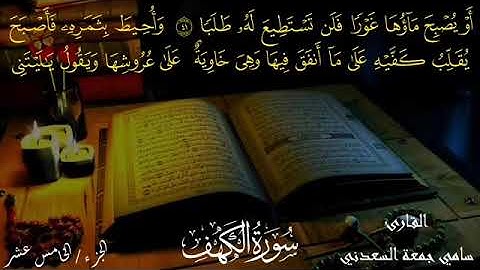 أَوْ يُصْبِحَ مَاؤُهَا غَوْرًا فَلَن تَسْتَطِيعَ لَهُۥ طَلَبًا ٤١ وَأُحِيطَ بِثَمَرِهِۦ فَأَصْبَحَ
يُقَلِّبُ كَفَّيْهِ عَلَىٰ مَآ أَنفَقَ فِيهَا وَهِيَ خَاوِيَةٌ عَلَىٰ عُرُوشِهَا وَيَقُولُ يَٰلَيْتَنِي
القارئ
سامي جمعة السعدني
سُورَةُ الكَهْفِ
الجزء / الخامس عشر